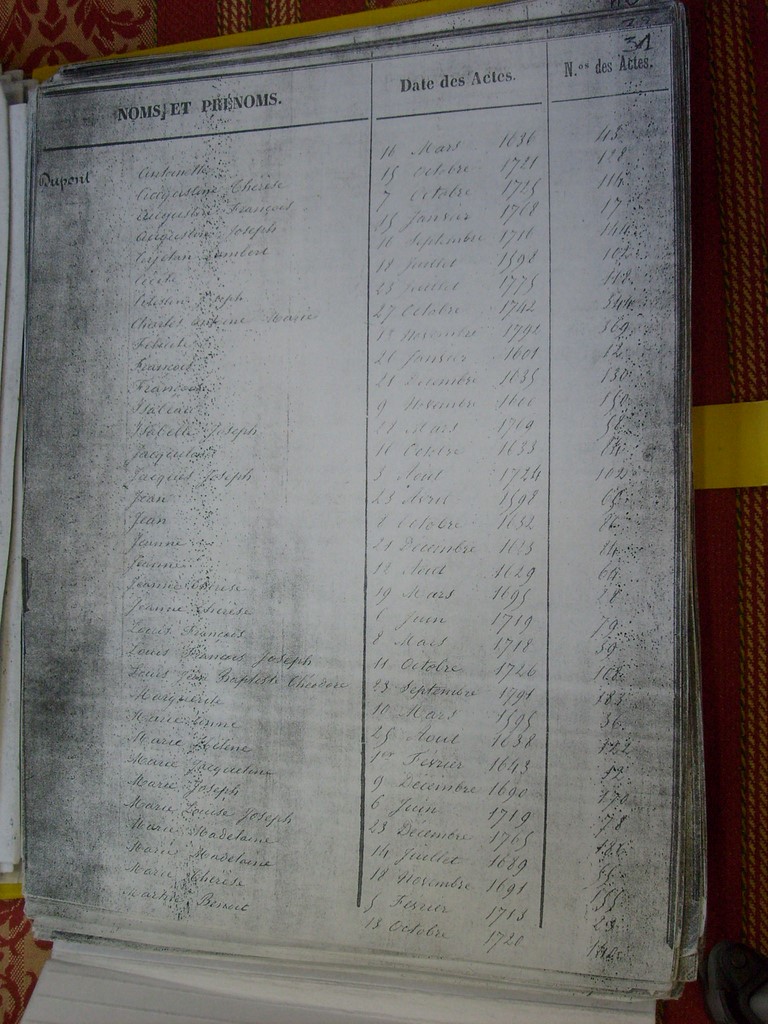 31
NOMS ET PRÉNOMS. Date des Actes. N.os des Actes.
Dupont Antoinette 16 Mars 1636 45
Augustine Thérèse 15 Octobre 1721 128
Augustin François 7 Octobre 1725 114
Augustin Joseph 15 Janvier 1768 17
Cajetan Lambert 16 Septembre 1716 144
Cécile 18 Juillet 1598 102
Célestin Joseph 23 Juillet 1775 112
Charles Antoine Marie 27 Octobre 1742
Félicité 13 Novembre 1792 369
François 20 Janvier 1601 12
Françoise 21 Decembre 1635 130
Isabeau 9 Novembre 1600 150
Isabelle Joseph 21 Mars 1709 58
Jacqueline 16 Octobre 1633 84
Jacques Joseph 3 Aout 1724 102
Jean 23 Avril 1598 68
Jean 1 Octobre 1632 86
Jeanne 21 Decembre 1623 84
Jeanne 12 Aout 1629 64
Jeanne Thérèse 19 Mars 1695 28
Jeanne Thérèse 6 Juin 1719 79
Louis François 8 Mars 1718 59
Louis François Joseph 11 Octobre 1726 168
Louis Jean Baptiste Théodore 23 Septembre 1791 183
Marguerite 10 Mars 1595 36
Marie Anne 25 Aout 1638 122
Marie Hélène 1er Fevrier 1643 12
Marie Jacqueline 9 Decembre 1690 170
Marie Joseph 6 Juin 1719 78
Marie Louise Joseph 23 Decembre 1765
Marie Madelaine 14 Juillet 1689 55
Marie Madelaine 18 Novembre 1691 155
Marie Thérèse 5 Fevrier 1713 23
Martin Benoit 13 Octobre 1720